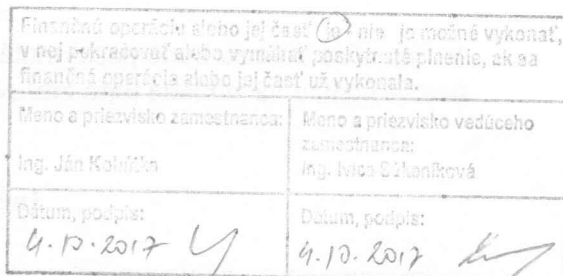 Finančnú operáciu alebo jej časť je - nie je možné vykonať,
v nej pokračovať alebo vymáhať poskytnuté plnenie, ak sa
finančná operácia alebo jej časť už vykonala.
Meno a priezvisko zamestnanca:
Ing. Ján
Meno a priezvisko vedúceho
zamestnanca:
Ing. Ivica
Dátum, podpis:
4.10.2017
Dátum, podpis:
4.10.2017